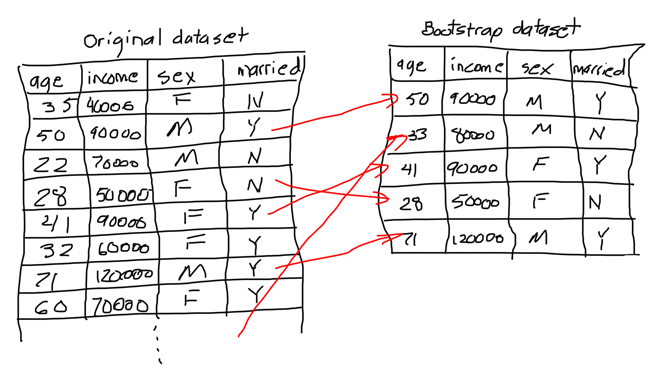 Original dataset
age income sex married
35 40000 F N
50 90000 M Y
22 70000 M N
28 50000 F N
41 90000 F Y
32 60000 F Y
71 120000 M Y
60 70000 F Y
Bootstrap dataset
age income sex married
50 90000 M Y
33 80000 M N
41 90000 F Y
28 50000 F N
71 120000 M Y